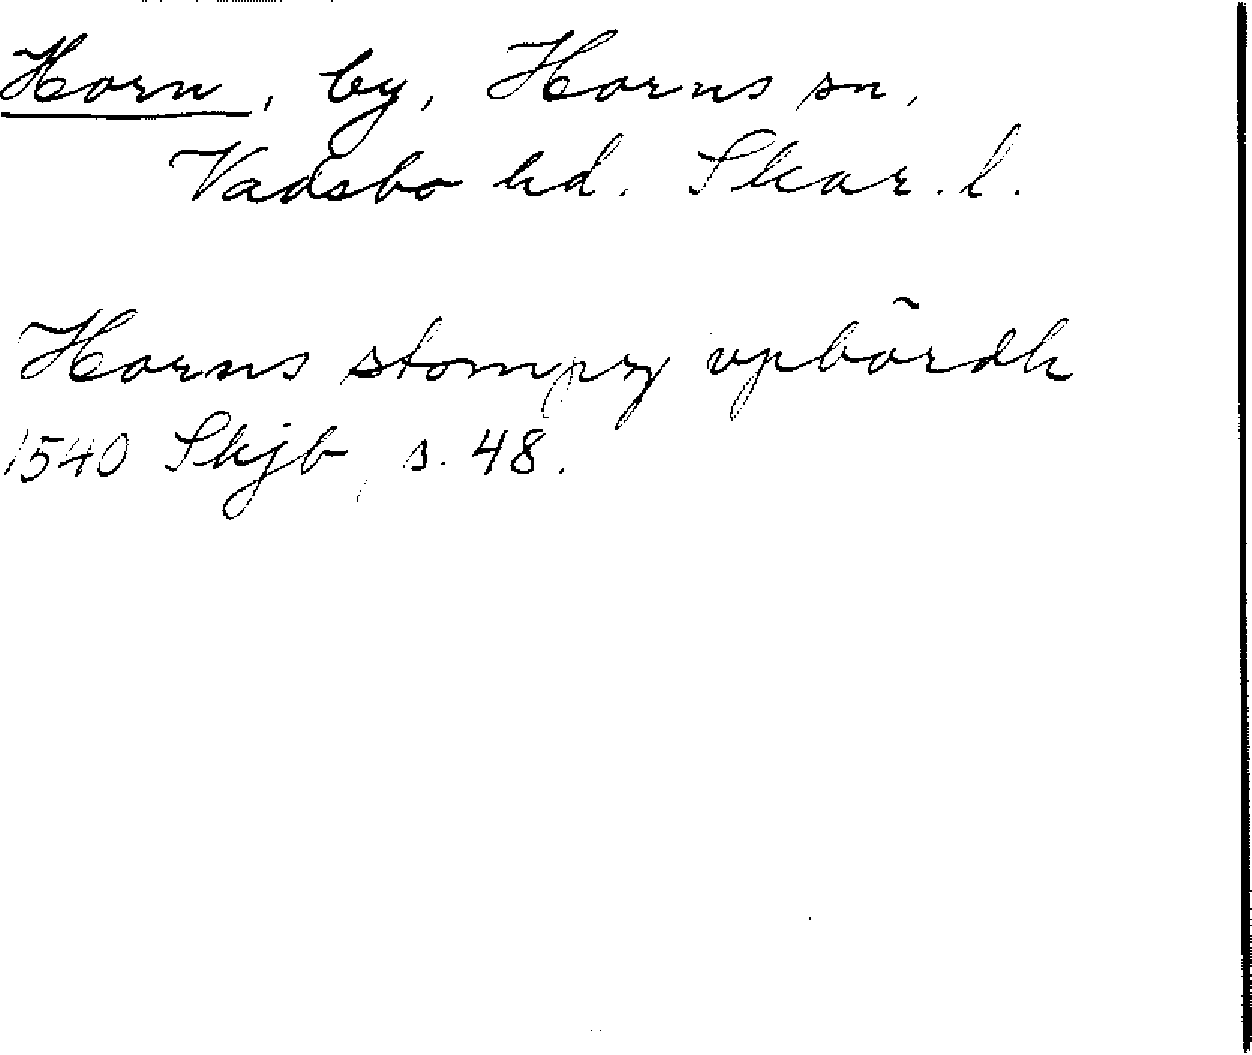 Horn, by, Horns sn,
Vadsbo hd. Skar. l.
Horns stompn vpbördh
1540 Skjb, s. 48.